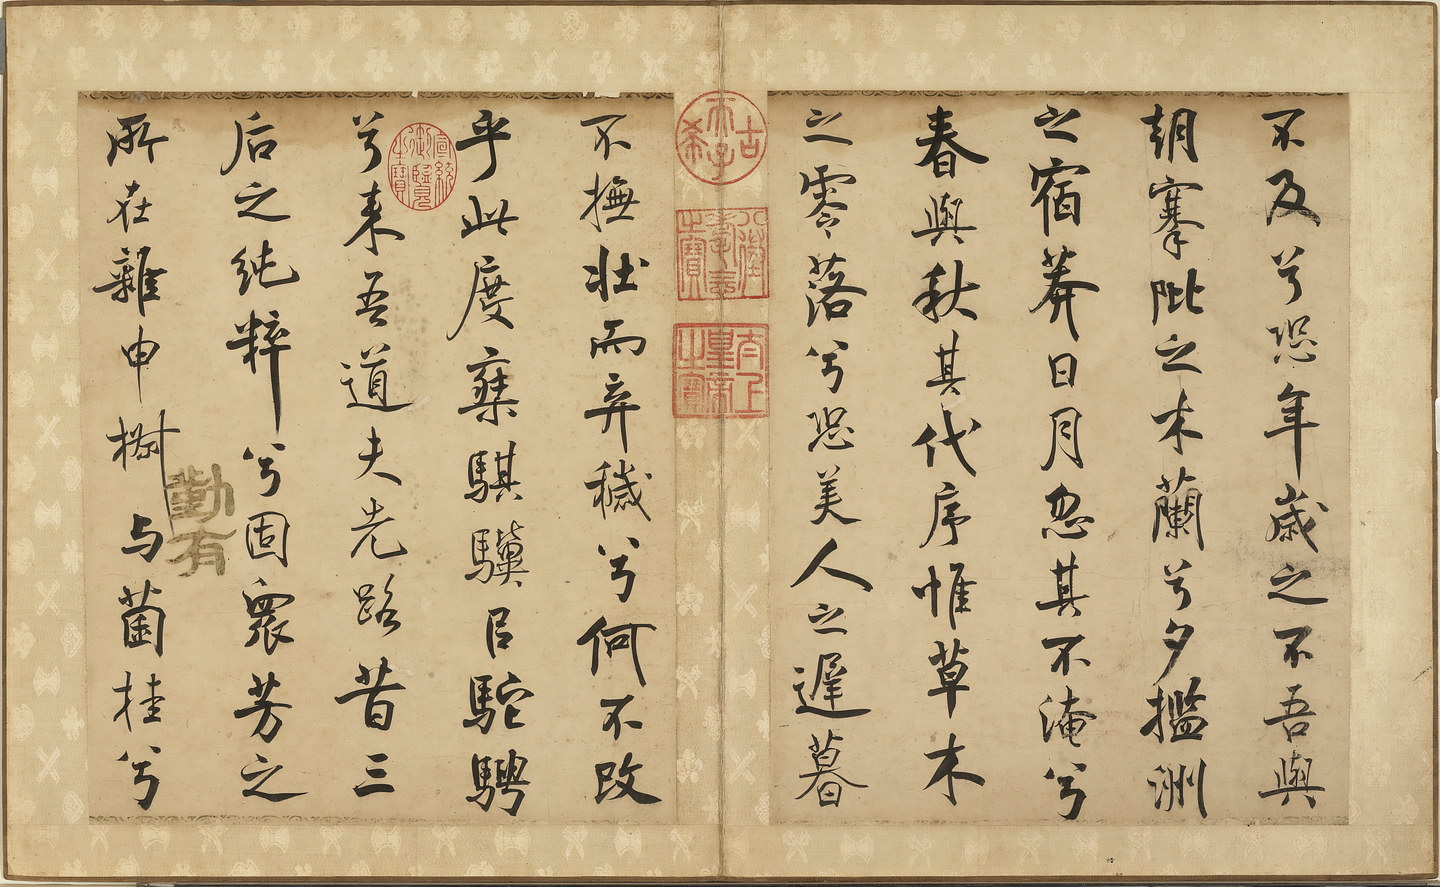 不及兮恐年歳之不吾與
朝搴阰之木蘭兮夕㩜洲
之宿莽日月忽其不淹兮
春與秋其代序惟草木
之零落兮恐美人之遲暮
古希天子
八徵耄念之寶
太上皇帝之寶
不撫壯而弃穢兮何不改
乎此度椉騏驥㠯駝騁
宣統御覽之寶
兮来吾道夫先路昔三
后之純粹兮固衆芳之
勤有
所在雜申椒与菌桂兮